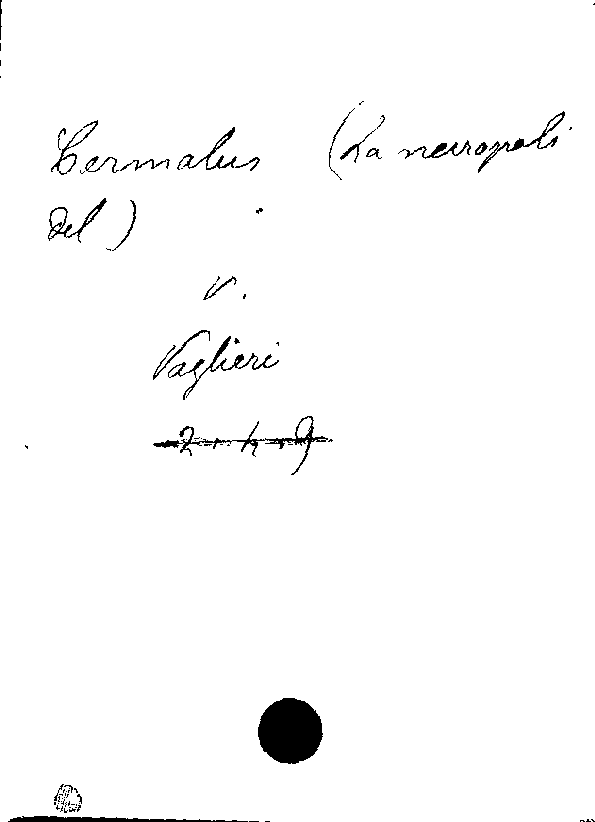 Cermalus (La necropoli
del)
V.
Vaglieri
2. h. 9